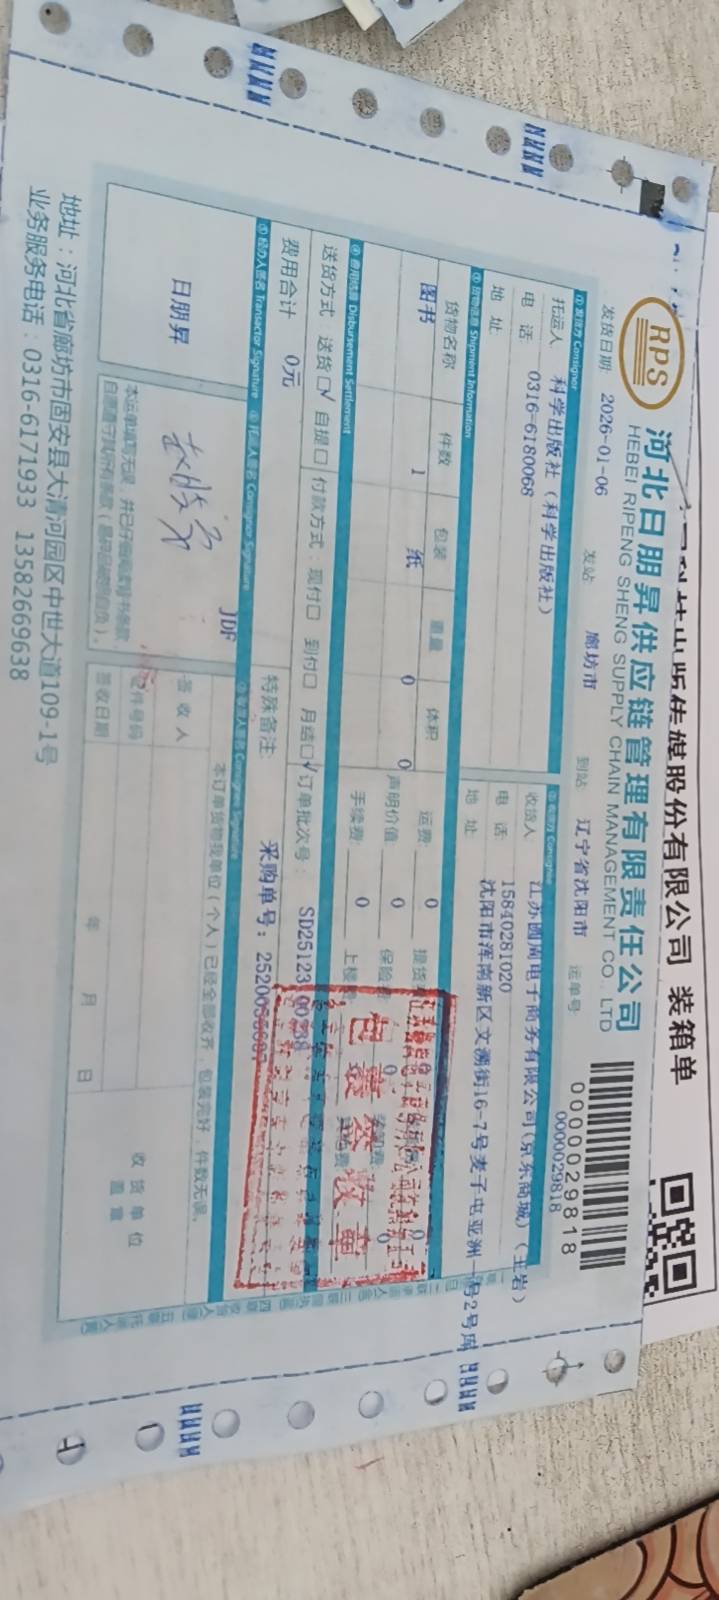 科技出版传媒股份有限公司 装箱单
RPS
河北日朋昇供应链管理有限责任公司
HEBEI RIPENG SHENG SUPPLY CHAIN MANAGEMENT CO., LTD
0000029818
发货日期: 2026-01-06 发站: 廊坊市 到站: 辽宁省沈阳市 运单号: 0000029818
①发货方 Consignor
托运人 科学出版社(科学出版社)
电 话 0316-6180068
地 址
②收货方 Consignee
收货人: 江苏圆周电子商务有限公司(京东商城)(王岩)
电 话: 15840281020
地 址: 沈阳市浑南新区文溯街16-7号麦子屯亚洲一号2号库
③货物信息 Shipment Information
货物名称 件数 包装 重量 体积
图书 1 纸 0 0
运费: 0
声明价值: 0
手续费: 0
④费用结算 Disbursement Settlement
送货方式: 送货☑ 自提□ 付款方式: 现付□ 到付□ 月结☑ 订单批次号:
费用合计 0元 特殊备注: 采购单号:
⑤经办人签名 Transactor Signature ⑥托运人签名 Consignor Signature ⑦收货人签名 Consignee Signature
日朋昇
JDF
本订单货物我单位(个人)已经全部收齐, 包装完好, 件数无误。
签 收 人
证件号码
签收日期 年 月 日
收 货 单 位
盖 章
地址:河北省廊坊市固安县大清河园区中世大道109-1号
业务服务电话:0316-6171933 13582669638